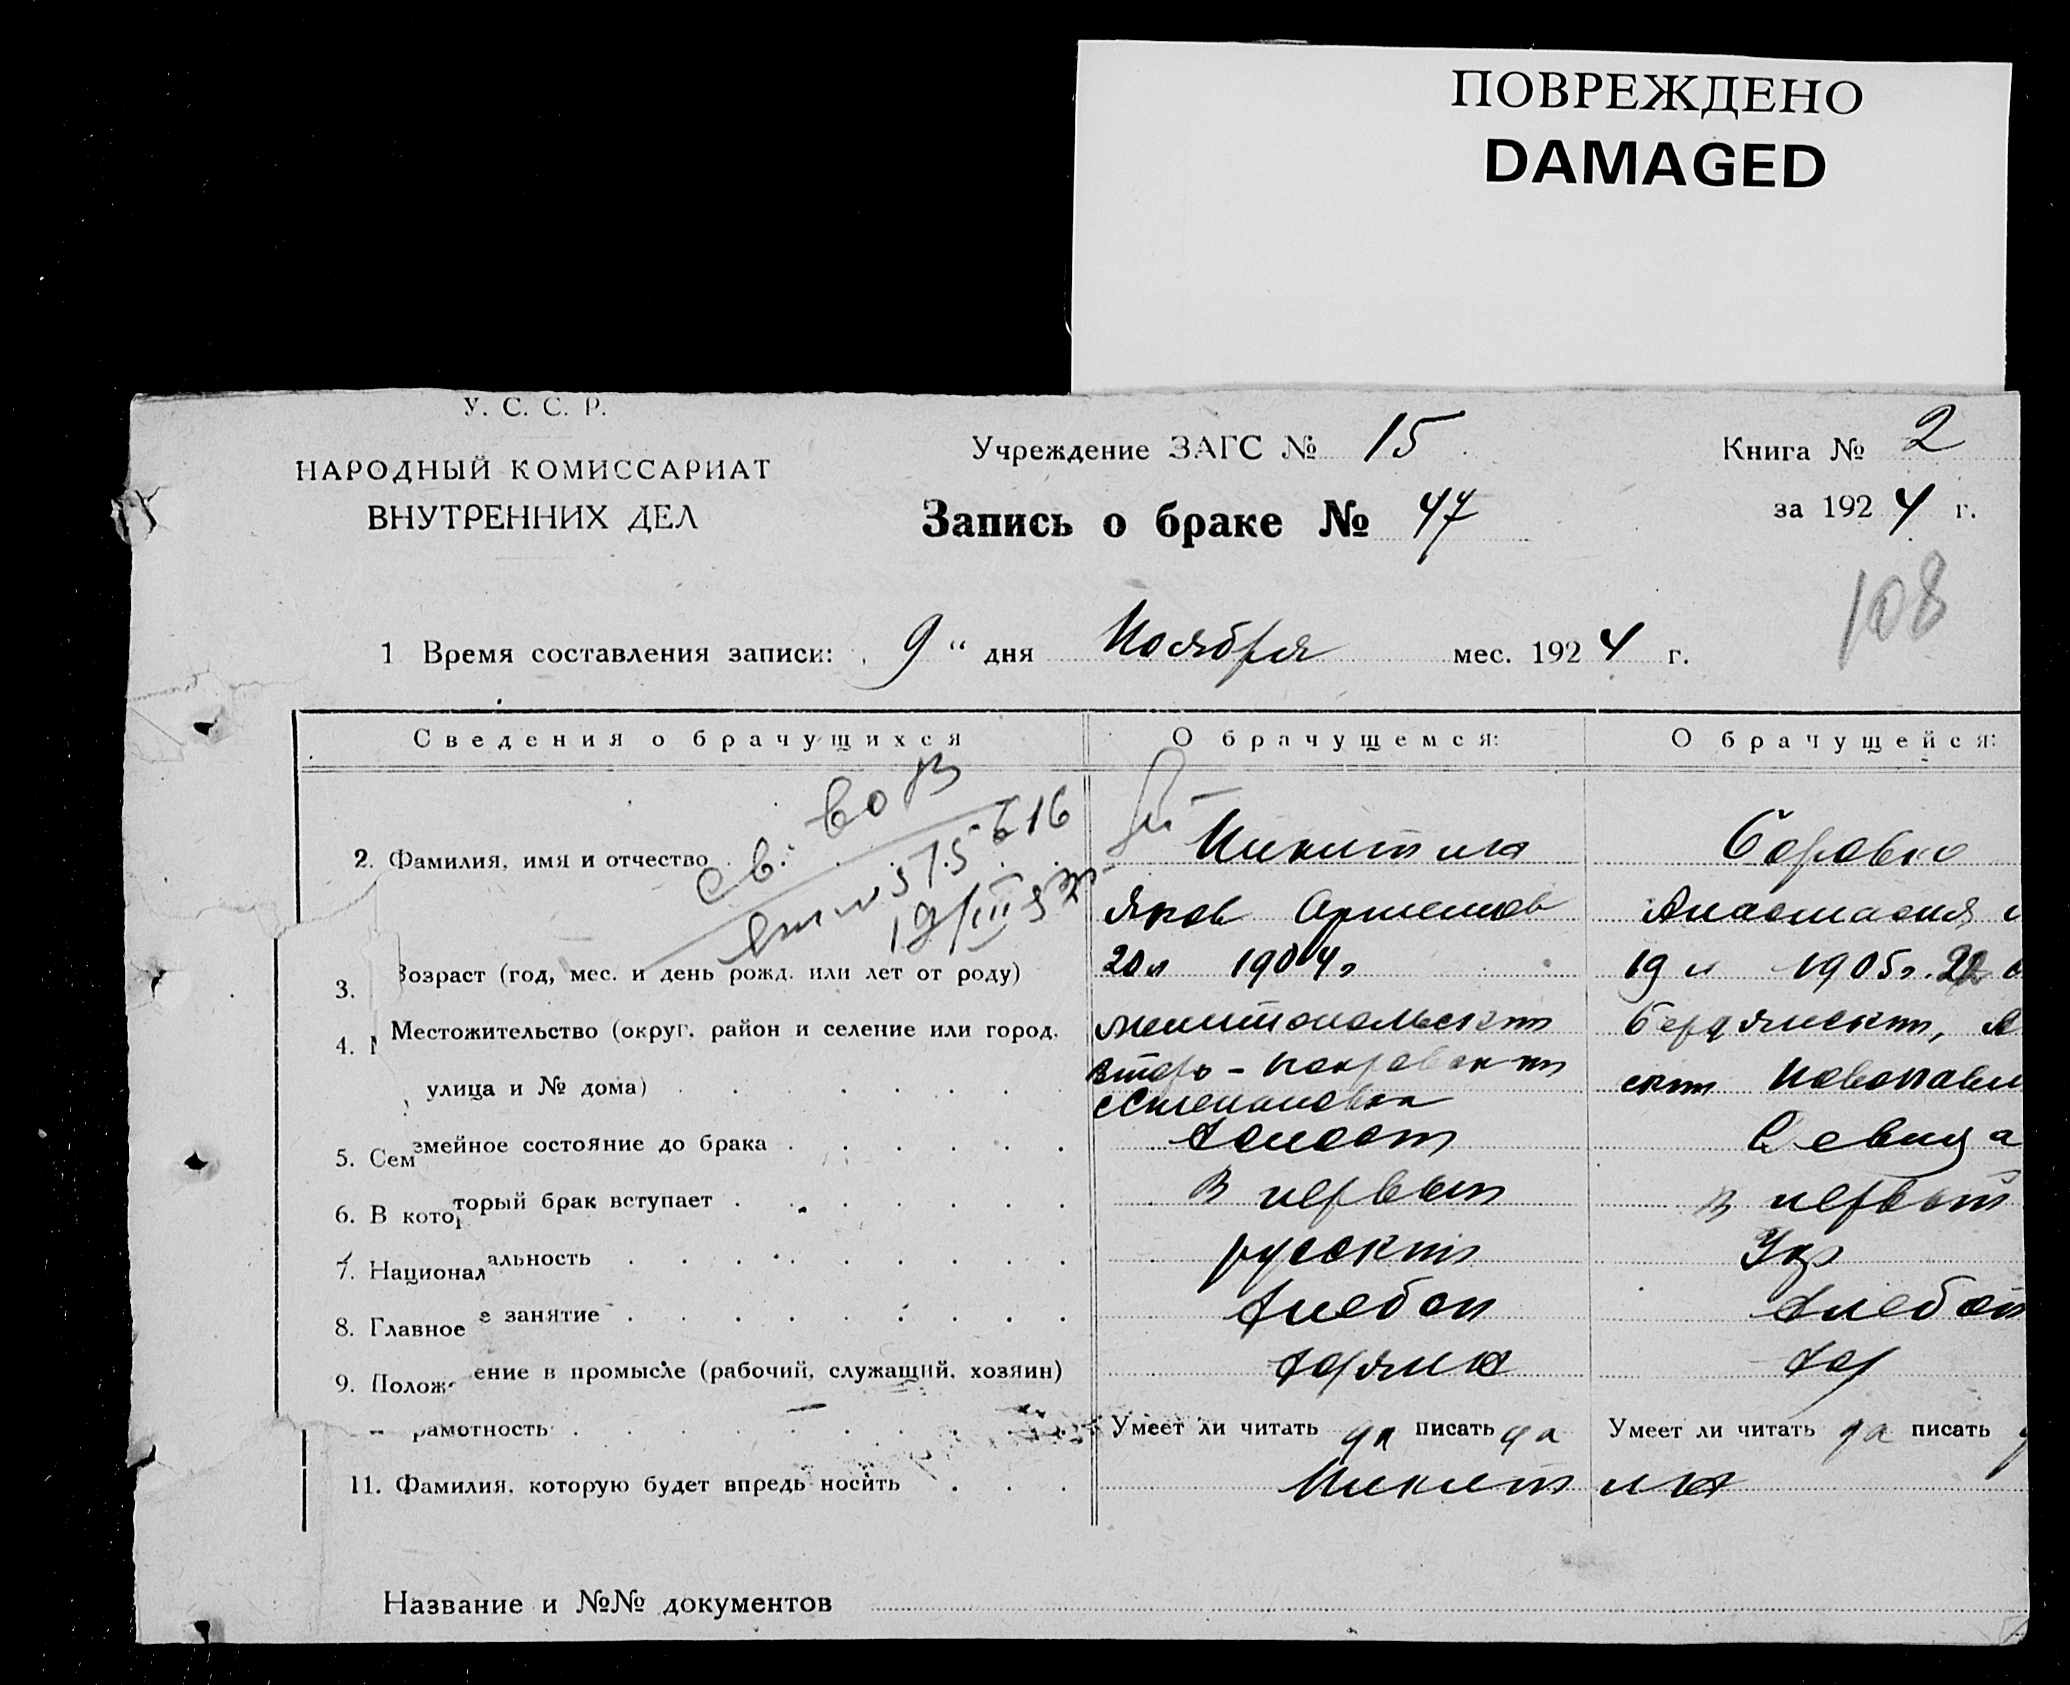 ПОВРЕЖДЕНО
DAMAGED
У. С. С. Р.
НАРОДНЫЙ КОМИССАРИАТ
ВНУТРЕННИХ ДЕЛ
Учреждение ЗАГС № 15
Книга № 2
Запись о браке № 47
за 1924 г.
108
1 Время составления записи: 9 " дня Ноября мес. 1924 г.
Сведения о брачущихся
О брачущемся:
О брачущейся:
2. Фамилия, имя и отчество
Никитин
Боровко
Яков Артемов
Анастасия
3. Возраст (год, мес. и день рожд. или лет от роду)
20 л 1904 г
19 л 1905 г. 22
4. Местожительство (округ, район и селение или город,
Мелитопольский
Бердянский,
улица и № дома)
Второ-покровский
ский Новопавл
с Степановка
5. Семейное состояние до брака
Холост
Девица
6. В который брак вступает
В первый
В первый
7. Национальность
русский
Укр
8. Главное занятие
Хлебоп
Хлебоп
9. Положение в промысле (рабочий, служащий, хозяин)
Хозяин
Хоз
рамотность
Умеет ли читать да писать да
Умеет ли читать да писать
11. Фамилия, которую будет впредь носить
Никитин
Название и №№ документов